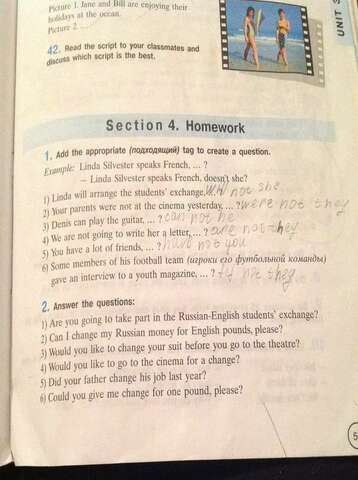 Picture 1. Jane and Bill are enjoying their
holidays at the ocean.
Picture 2. ...
42. Read the script to your classmates and
discuss which script is the best.
UNIT 3
Section 4. Homework
1. Add the appropriate (подходящий) tag to create a question.
Example: Linda Silvester speaks French, ... ?
– Linda Silvester speaks French, doesn't she?
1) Linda will arrange the students' exchange, will not she
2) Your parents were not at the cinema yesterday, ... ? were not they
3) Denis can play the guitar, ... ? can not he
4) We are not going to write her a letter, ... ? are not they
5) You have a lot of friends, ... ? not you
6) Some members of his football team (игроки его футбольной команды)
gave an interview to a youth magazine, ... ? not they
2. Answer the questions:
1) Are you going to take part in the Russian-English students' exchange?
2) Can I change my Russian money for English pounds, please?
3) Would you like to change your suit before you go to the theatre?
4) Would you like to go to the cinema for a change?
5) Did your father change his job last year?
6) Could you give me change for one pound, please?